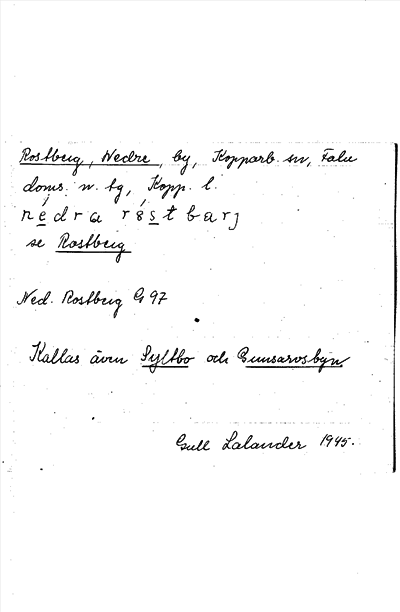 Rostberg, Nedre, by, Kopparb. sn, Falu
doms. n. tg, Kopp. l.
nedra rȯstbarj
se Rostberg
Ned. Rostberg G 97
Kallas även Syltbo och Gunsarvsbyn
Gull Lalander 1945.